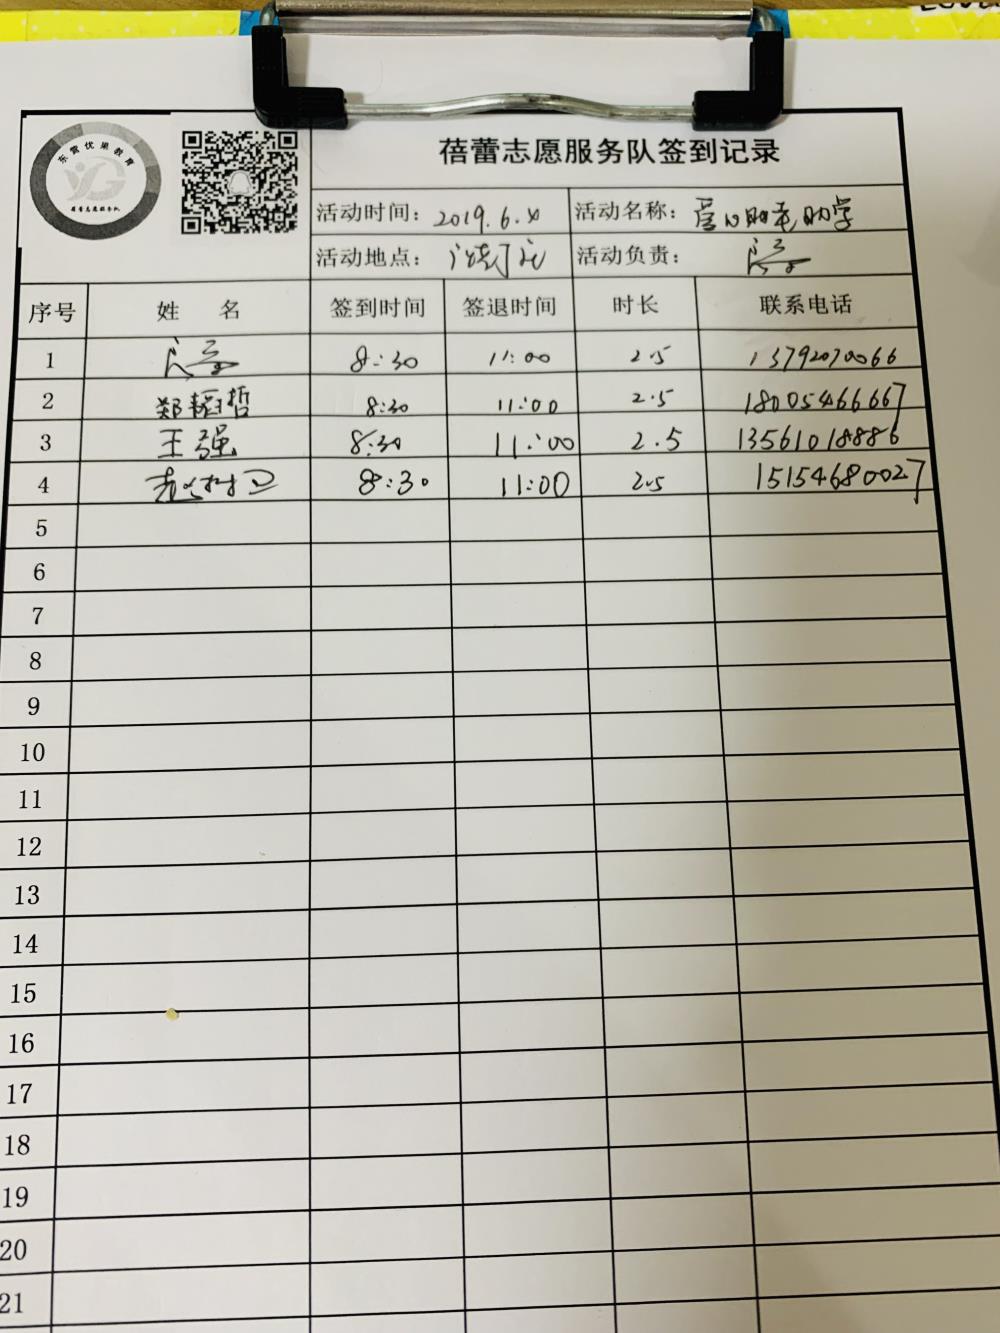 东营优果教育
蓓蕾志愿服务队
蓓蕾志愿服务队签到记录
活动时间： 2019.6.x 活动名称： 爱心助老助学
活动地点： 活动负责：
序号 姓 名 签到时间 签退时间 时长 联系电话
1 8:30 11:00 2.5 13792070066
2 郑韬哲 8:30 11:00 2.5 18005466667
3 王强 8:30 11:00 2.5 13561018886
4 8:30 11:00 2.5 15154680027
5
6
7
8
9
10
11
12
13
14
15
16
17
18
19
20
21